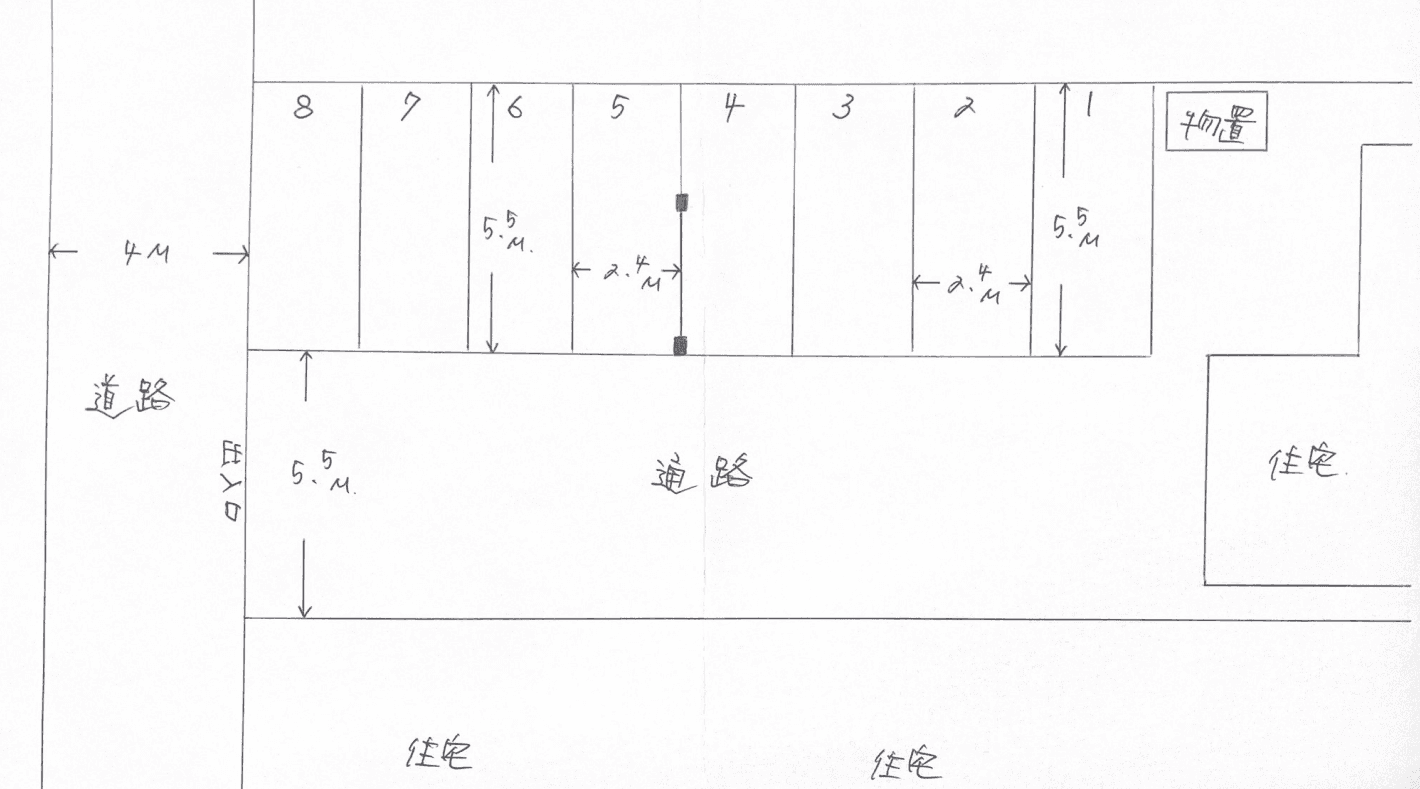 8 7 6 5 4 3 2 1
物置
4M
5.5M.
2.4M
2.4M
5.5M
道路
出入口
5.5M.
通路
住宅.
住宅
住宅